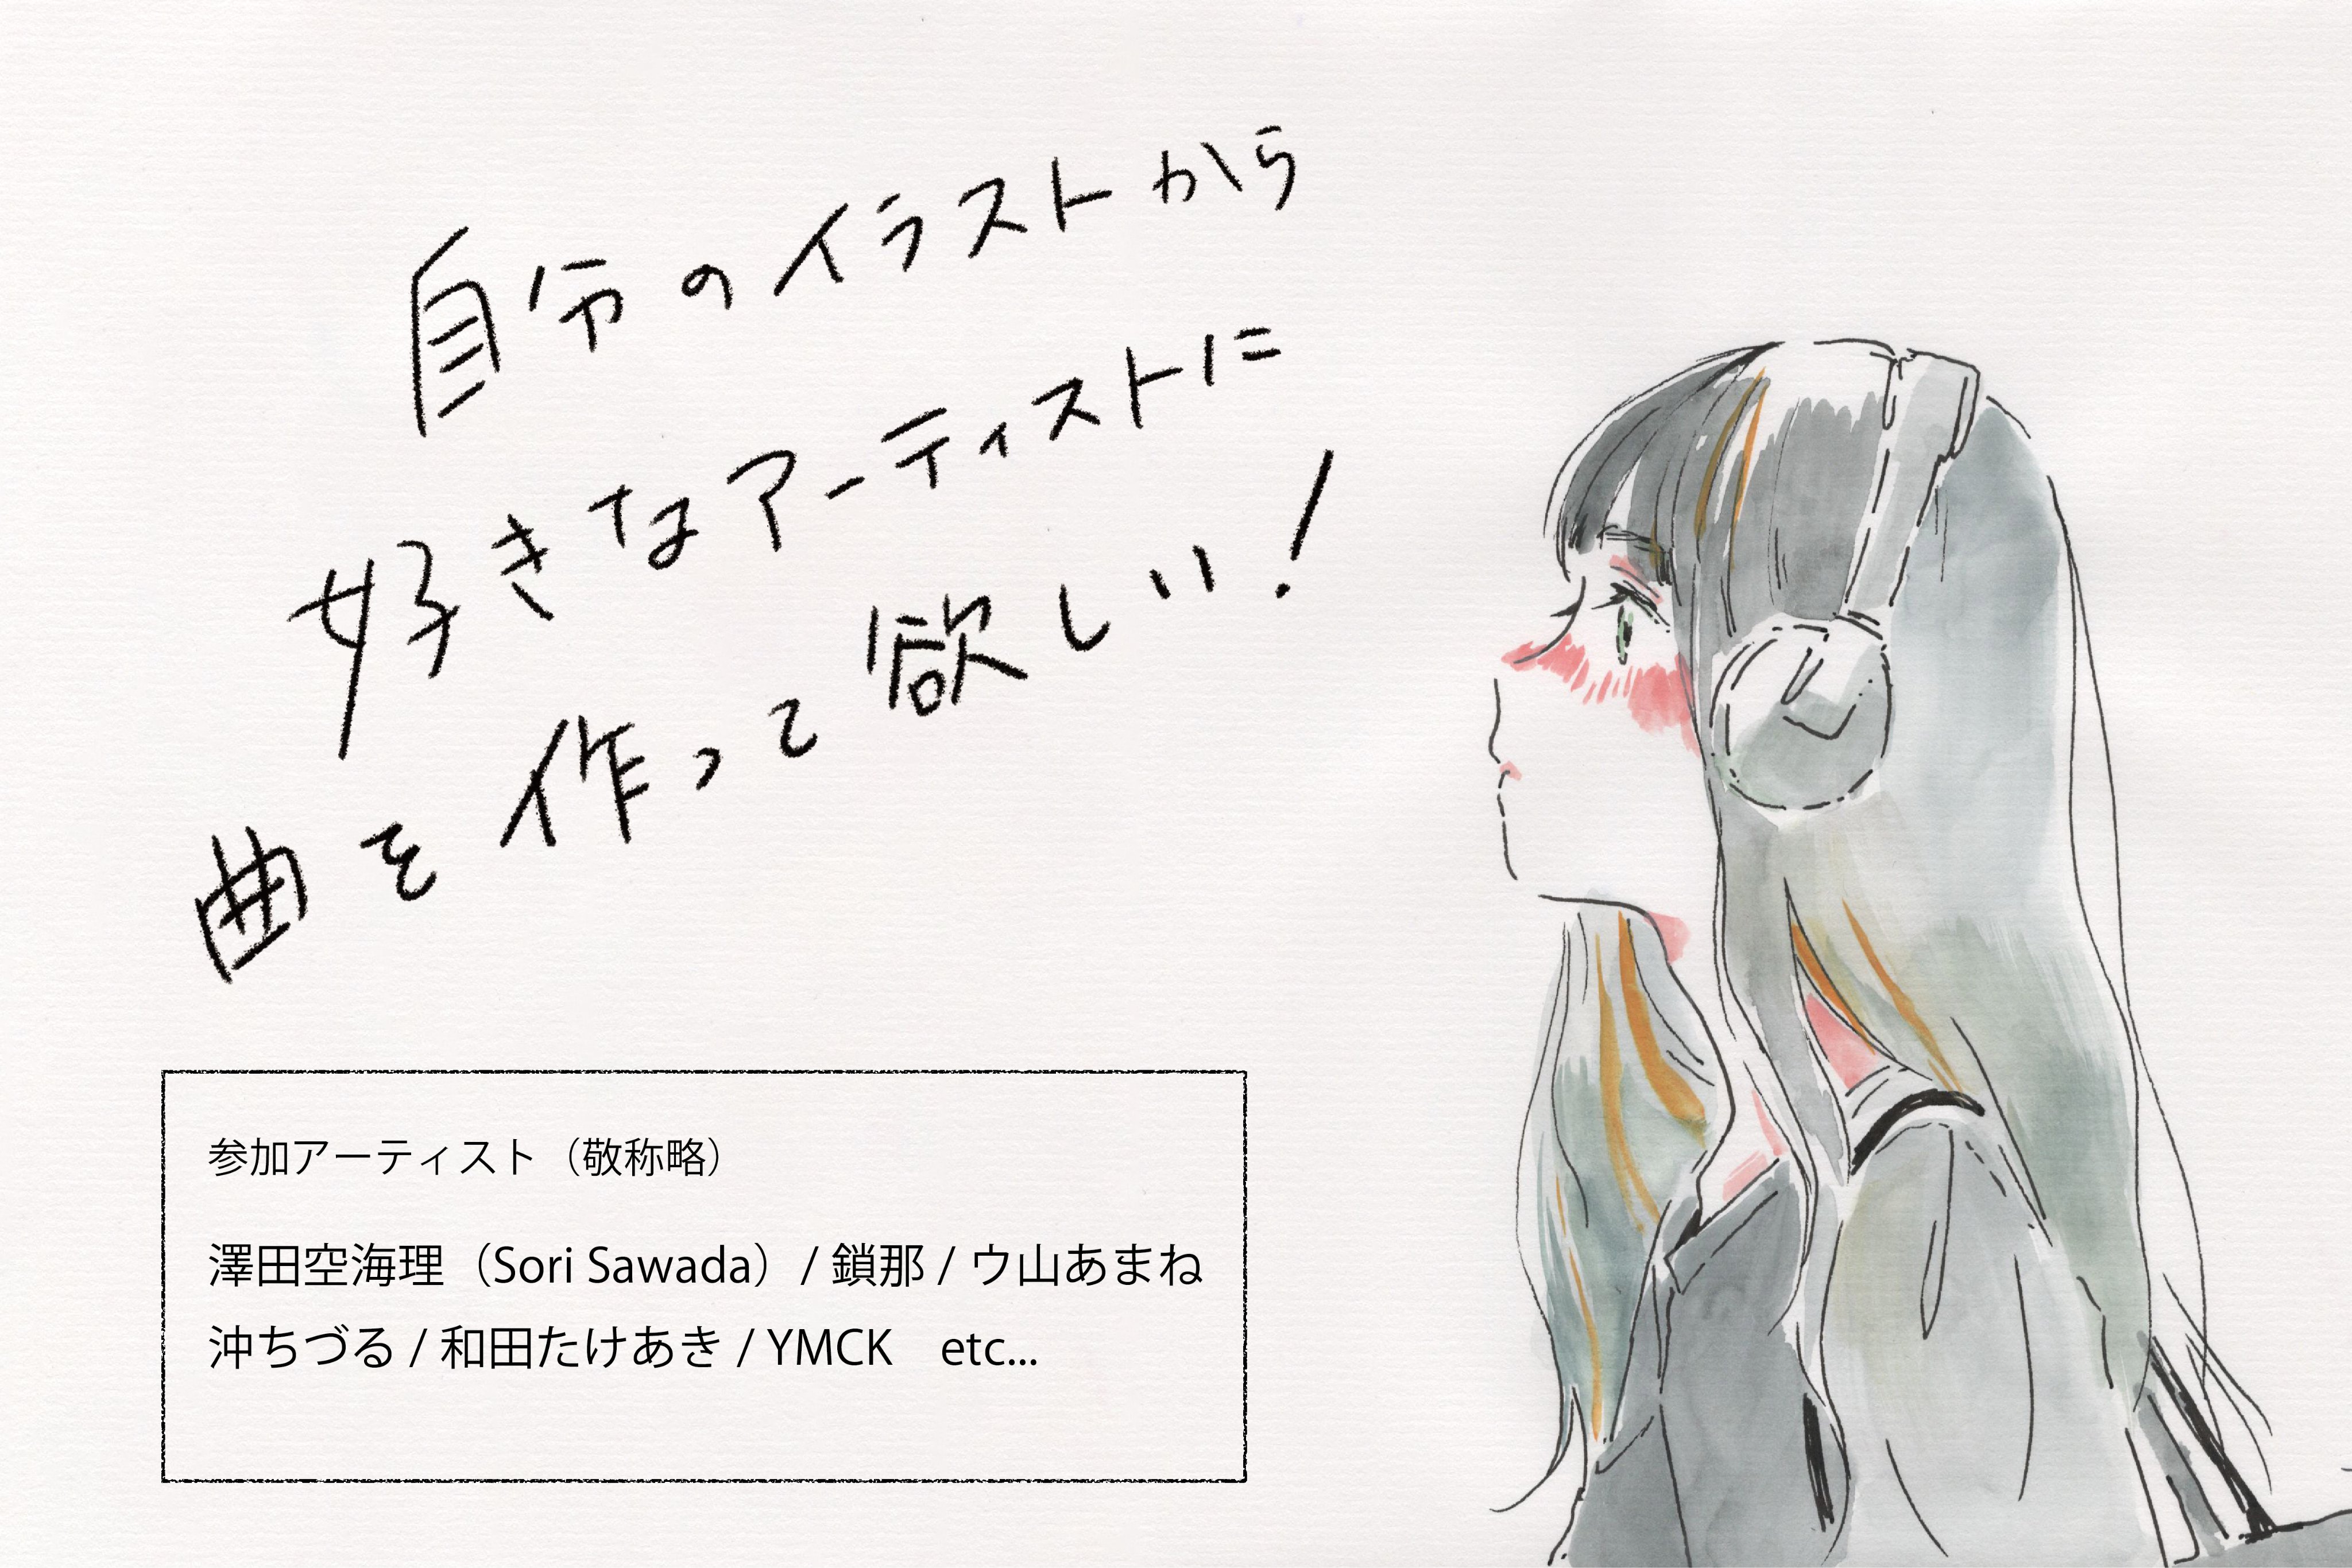 自分のイラストから
好きなアーティストに
曲を作って欲しい！
参加アーティスト（敬称略）
澤田空海理（Sori Sawada）/ 鎖那 / ウ山あまね
沖ちづる / 和田たけあき / YMCK　etc...